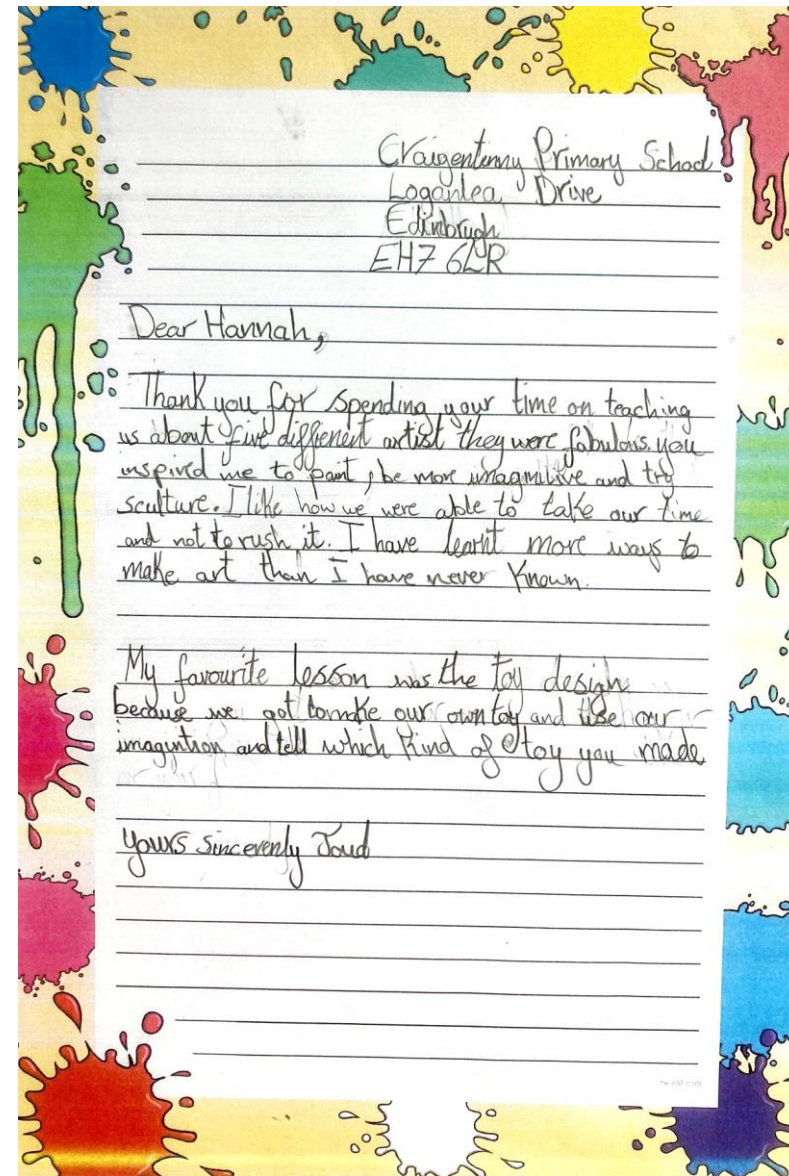 Craigentinny Primary School
Loganlea Drive
Edinbrugh
EH7 6LR
Dear Hannah,
Thank you for spending your time on teaching
us about five diffienent artist they were fabulous. you
inspired me to paint, be more imaginitive and try
sculture. I like how we were able to take our time
and not to rush it. I have learnt more ways to
make art than I have never known.
My favourite lesson was the toy design
because we got to make our own toy and use our
imagintion and tell which kind of toy you made
yours sincerenly Joud